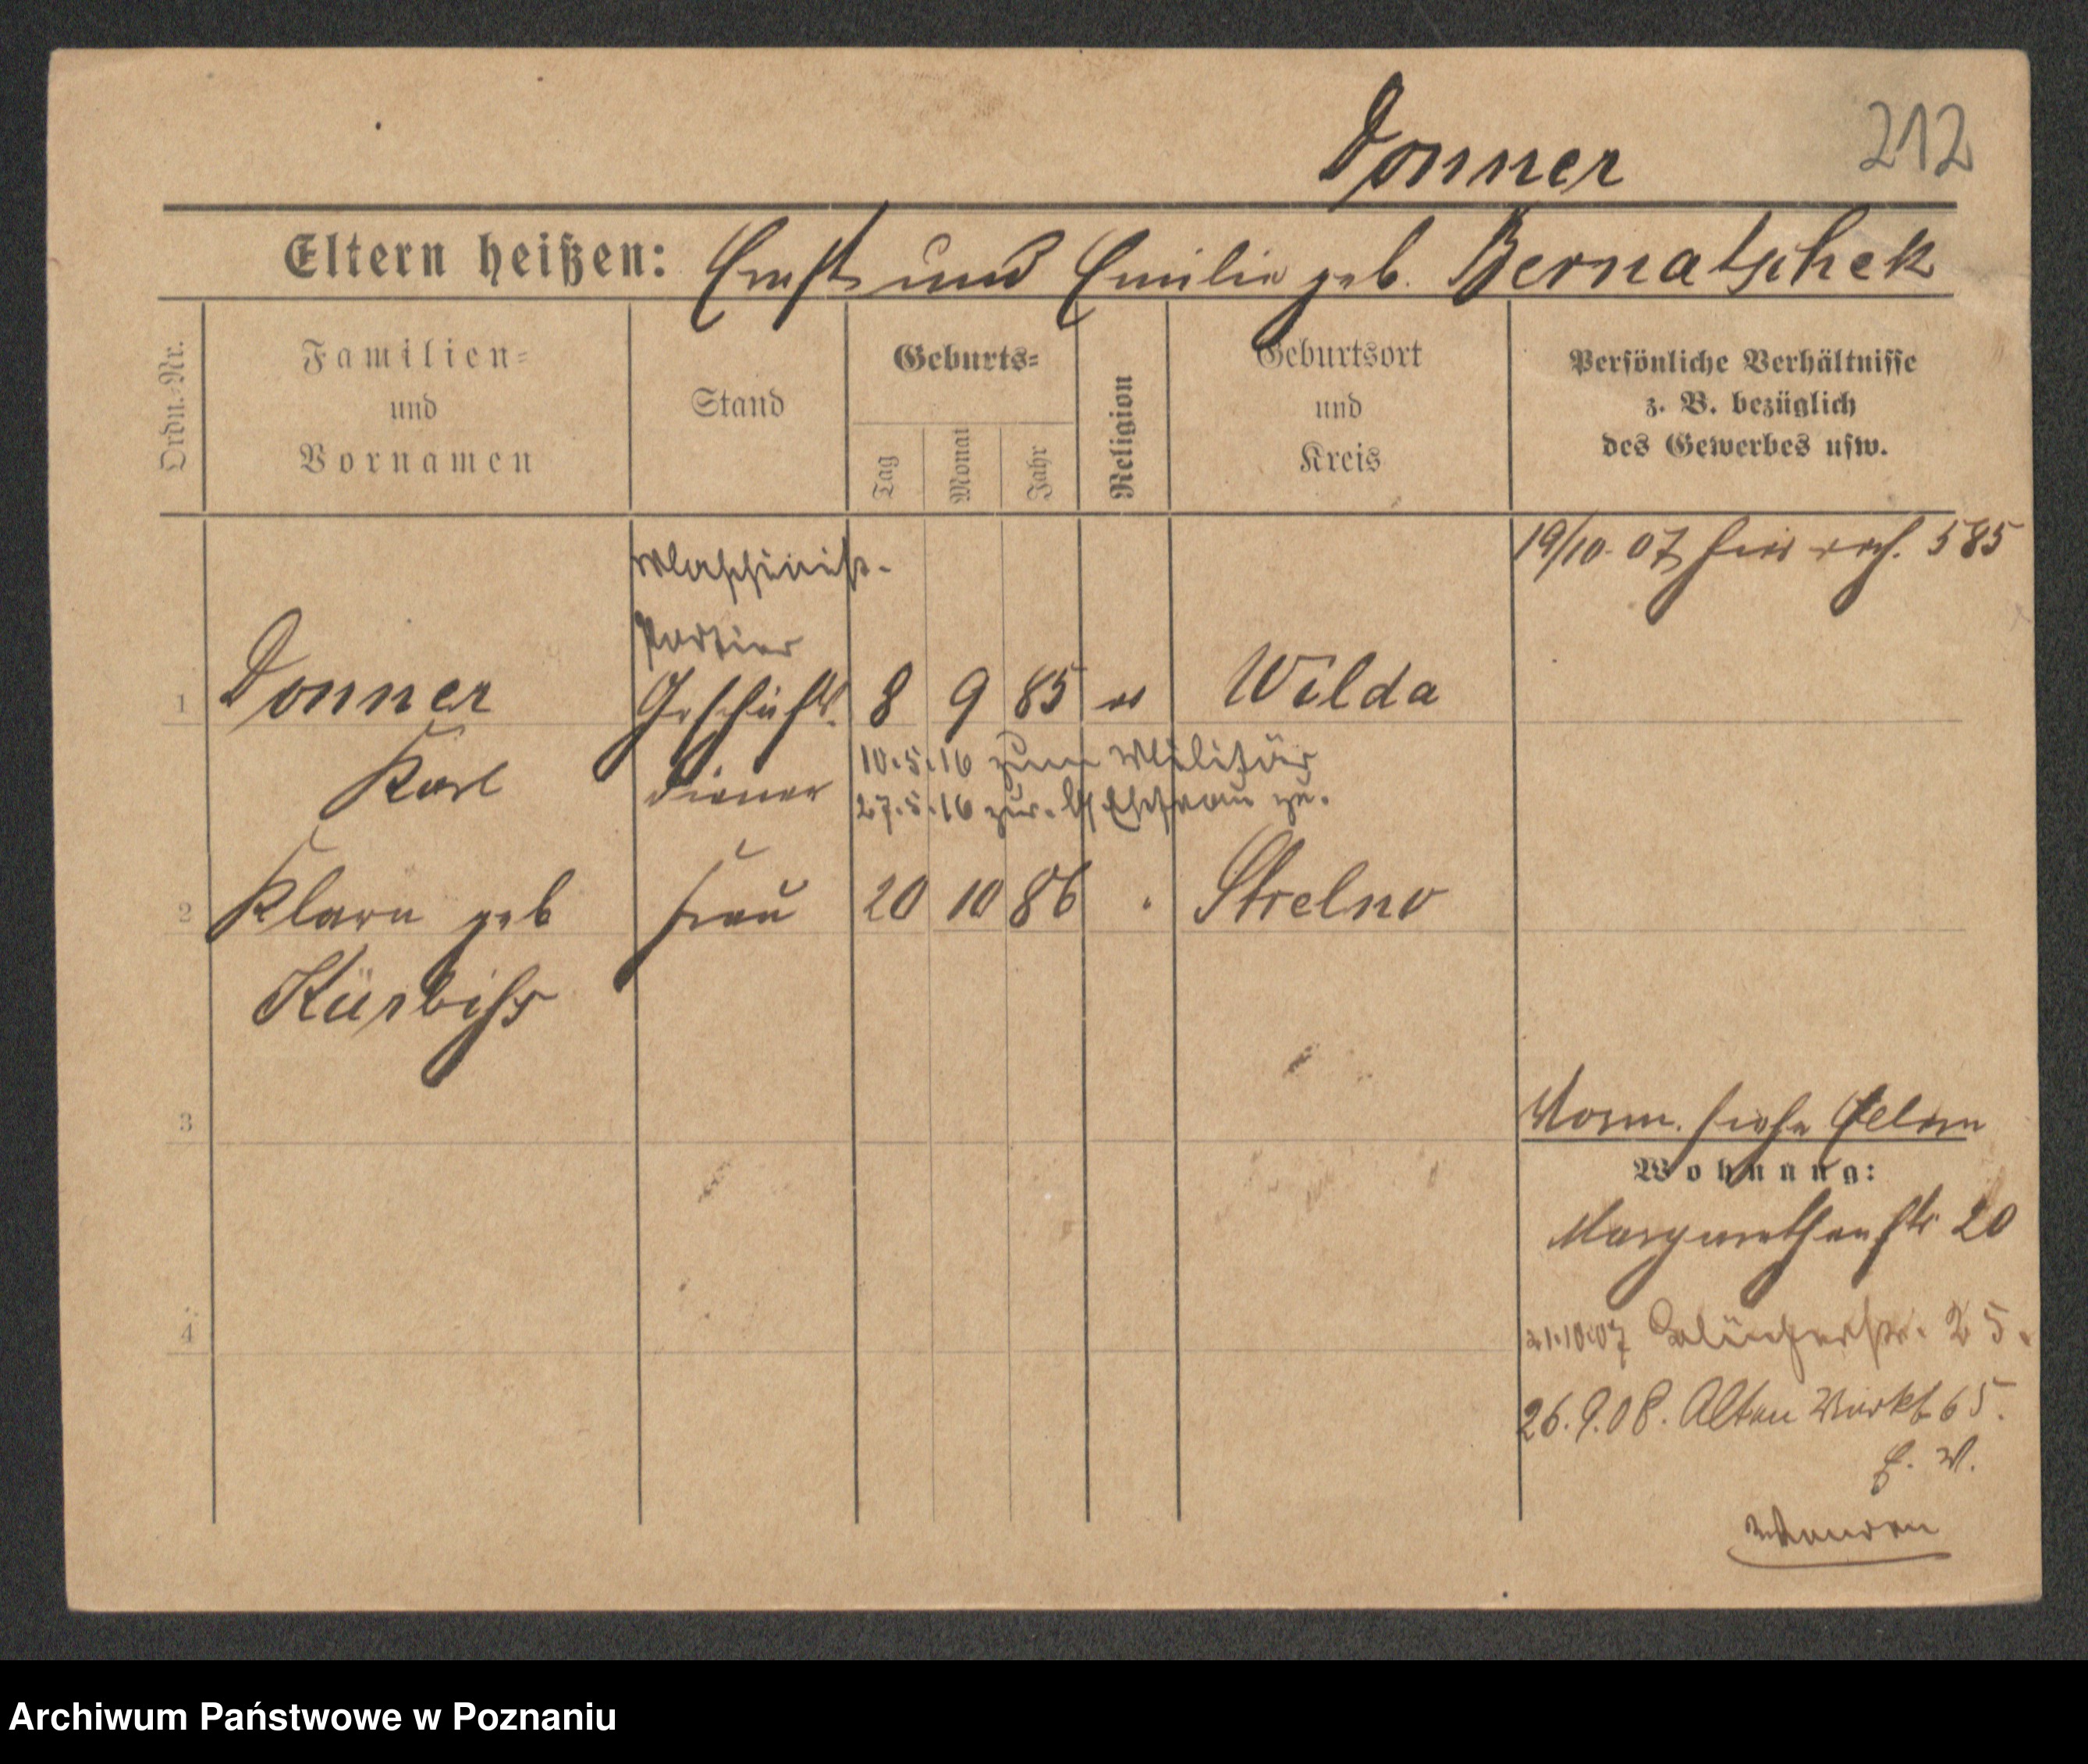 Donner
212
Eltern heißen: Ernst und Emilie geb. Bernatschek
Ordn.-Nr.
Familien-
und
Vornamen
Stand
Geburts-
Tag
Monat
Jahr
Religion
Geburtsort
und
Kreis
Persönliche Verhältnisse
z. B. bezüglich
des Gewerbes usw.
19/10. 07 585
Maschinist.
Portier
1 Donner Geschäfts. 8 9 85 Wilda
Karl diener
10.5.16 zum Militär
27.5.16 zur. Ehefrau
2 Klara geb Frau 20 10 86 Strelno
Kürbiss
3
Vorm. siehe Eltern
Wohnung:
Margarethenstr 20
4
21.10.07 25.
26.9.08. Alten Markt 65.
Archiwum Państwowe w Poznaniu